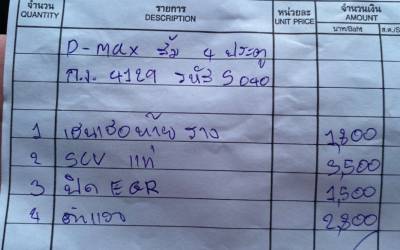 จำนวน รายการ หน่วยละ จำนวนเงิน
QUANTITY DESCRIPTION UNIT PRICE AMOUNT
บาท/Baht ส.ต./S
D-max ส้ม 4 ประตู
ก.ง. 4129 รหัส 5040
1 เซนเซอท้ายราง 1,800
2 SCV แท้ 3,500
3 ปิด EGR 1,500
4 2,800